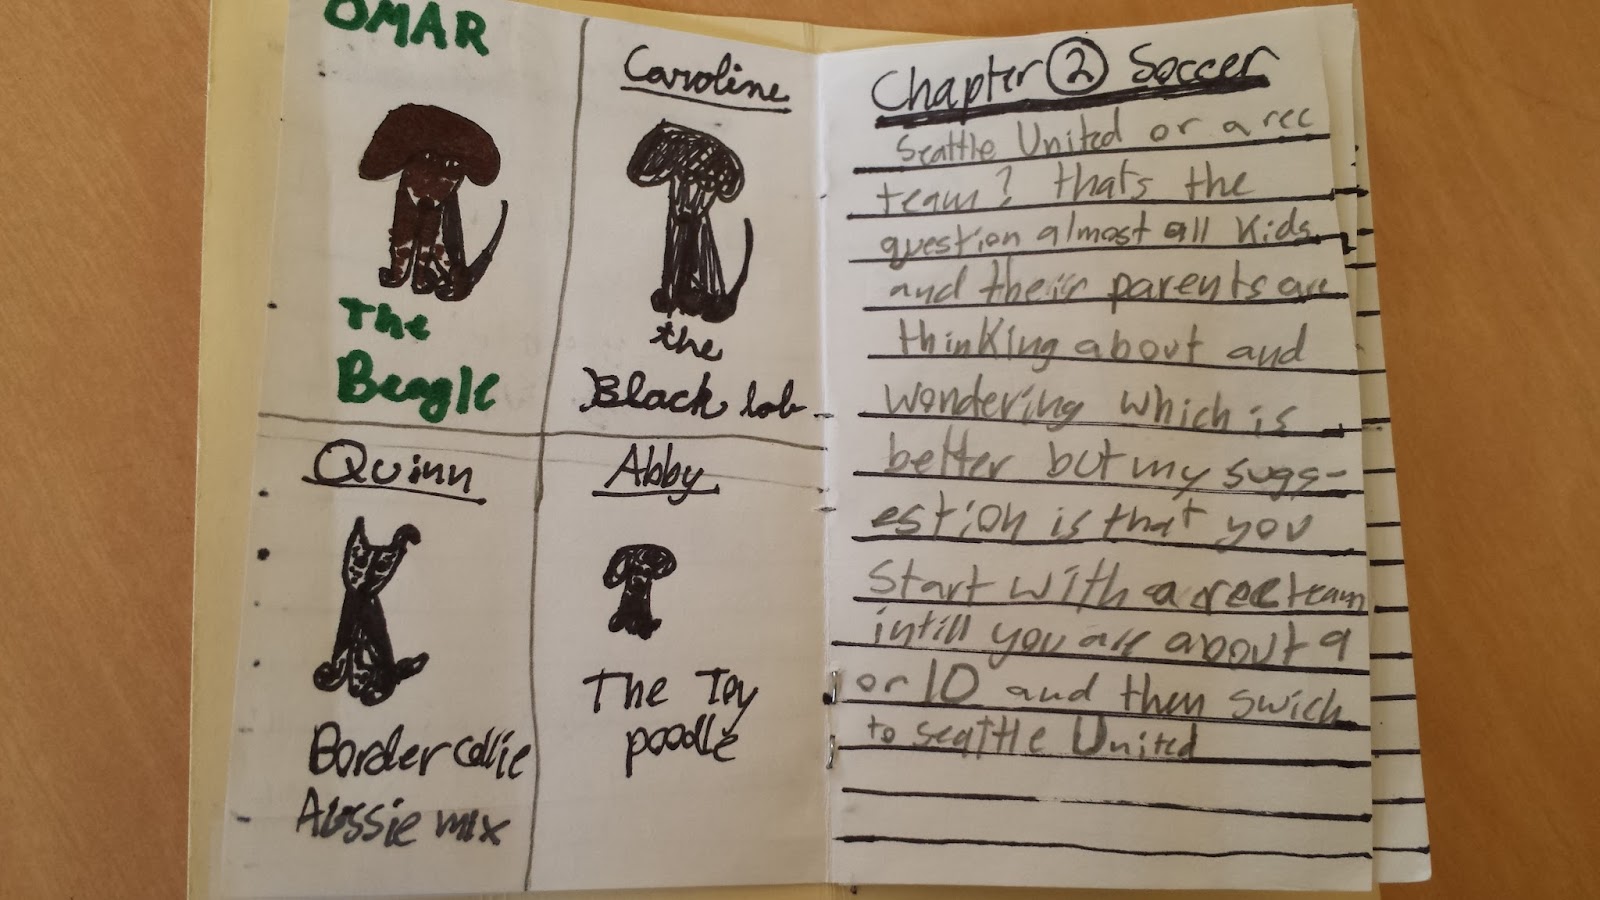 OMAR
The
Beagle
Caroline
the
Black lab
Quinn
Border collie
Aussie mix
Abby
The Toy
poodle
Chapter 2 Soccer
Seattle United or a rec
team? thats the
question almost all Kids
and their parents are
thinking about and
wondering which is
better but my sugg-
estion is that you
Start with a rec team
intill you are about 9
or 10 and then swich
to seattle United